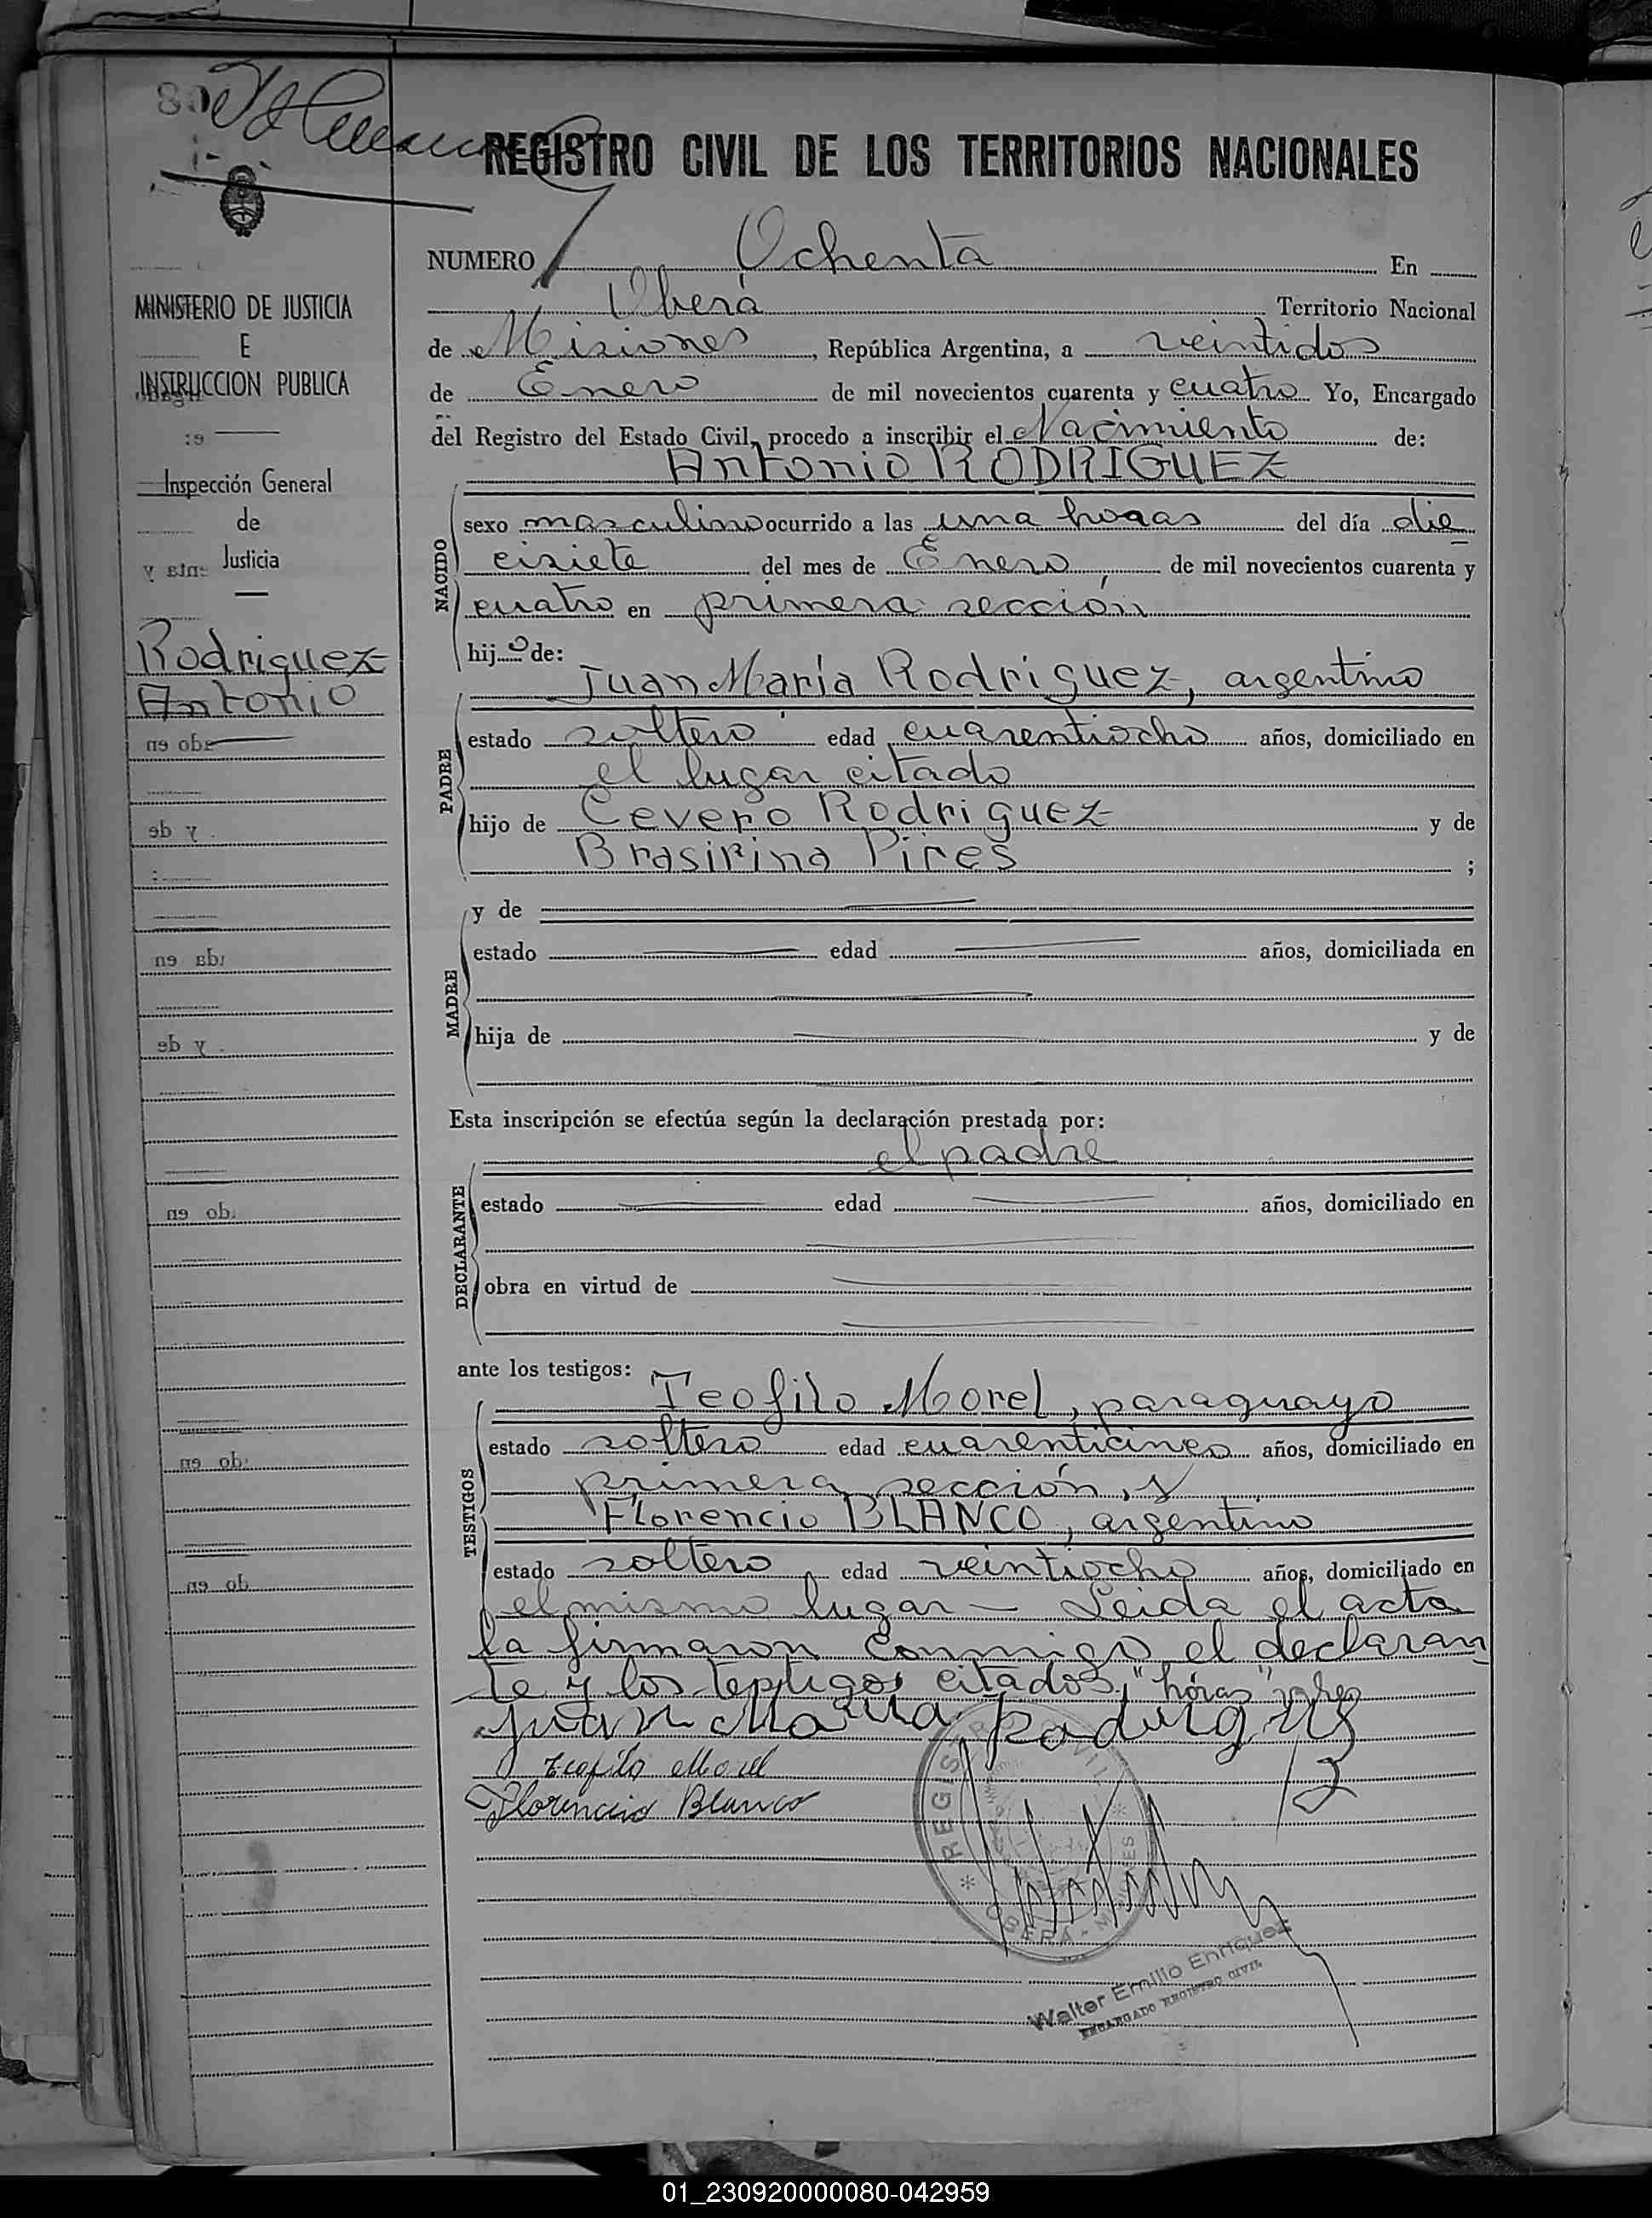 80
REGISTRO CIVIL DE LOS TERRITORIOS NACIONALES
NUMERO Ochenta En
Oberá Territorio Nacional
de Misiones, República Argentina, a veintidos
de Enero de mil novecientos cuarenta y cuatro Yo, Encargado
del Registro del Estado Civil, procedo a inscribir el Nacimiento de:
Antonio RODRIGUEZ
NACIDO
sexo masculino ocurrido a las una horas del día die_
cisiete del mes de Enero, de mil novecientos cuarenta y
cuatro en primera sección
hijo de:
Juan María Rodriguez, argentino
PADRE
estado soltero edad cuarentiocho años, domiciliado en
el lugar citado
hijo de Cevero Rodriguez y de
Brasirina Pires ;
MADRE
y de
estado edad años, domiciliada en
hija de y de
Esta inscripción se efectúa según la declaración prestada por:
el padre
DECLARANTE
estado edad años, domiciliado en
obra en virtud de
ante los testigos:
Teofilo Morel, paraguayo
TESTIGOS
estado soltero edad cuarenticinco años, domiciliado en
primera sección, y
Florencio BLANCO, argentino
estado soltero edad veintiocho años, domiciliado en
el mismo lugar — Leida el acta
la firmaron conmigo el declaran_
te y los testigos citados, "horas"
Juan Maria Rodriguez
Teofilo Morel
Florencio Blanco
REGISTRO CIVIL
OBERÁ - MISIONES
Walter Emilio Enriquez
ENCARGADO REGISTRO CIVIL
MINISTERIO DE JUSTICIA
E
INSTRUCCION PUBLICA
Inspección General
de
Justicia
Rodriguez
Antonio
01_230920000080-042959